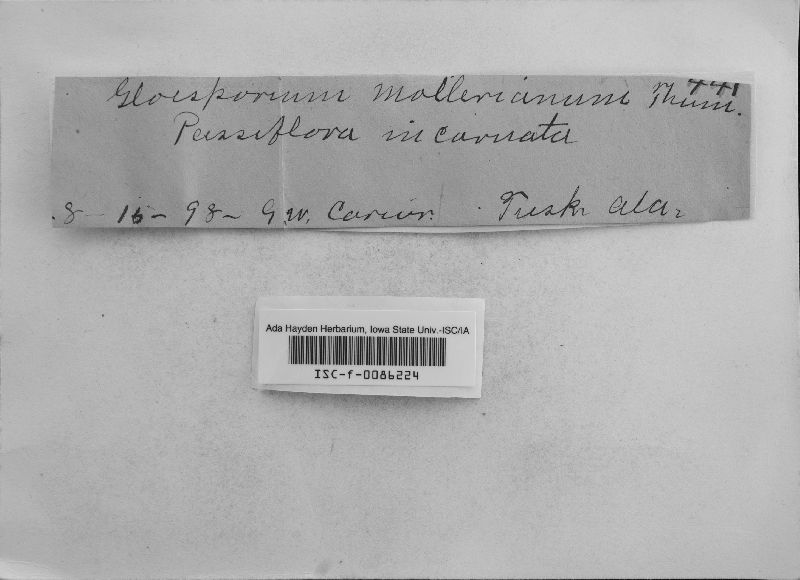 441
Gloesporium mollerianum Thum.
Passiflora incarnata
8-15-98- G.W. Carver. Tusk Ala.
Ada Hayden Herbarium, Iowa State Univ.-ISC/IA
ISC-f-0086224